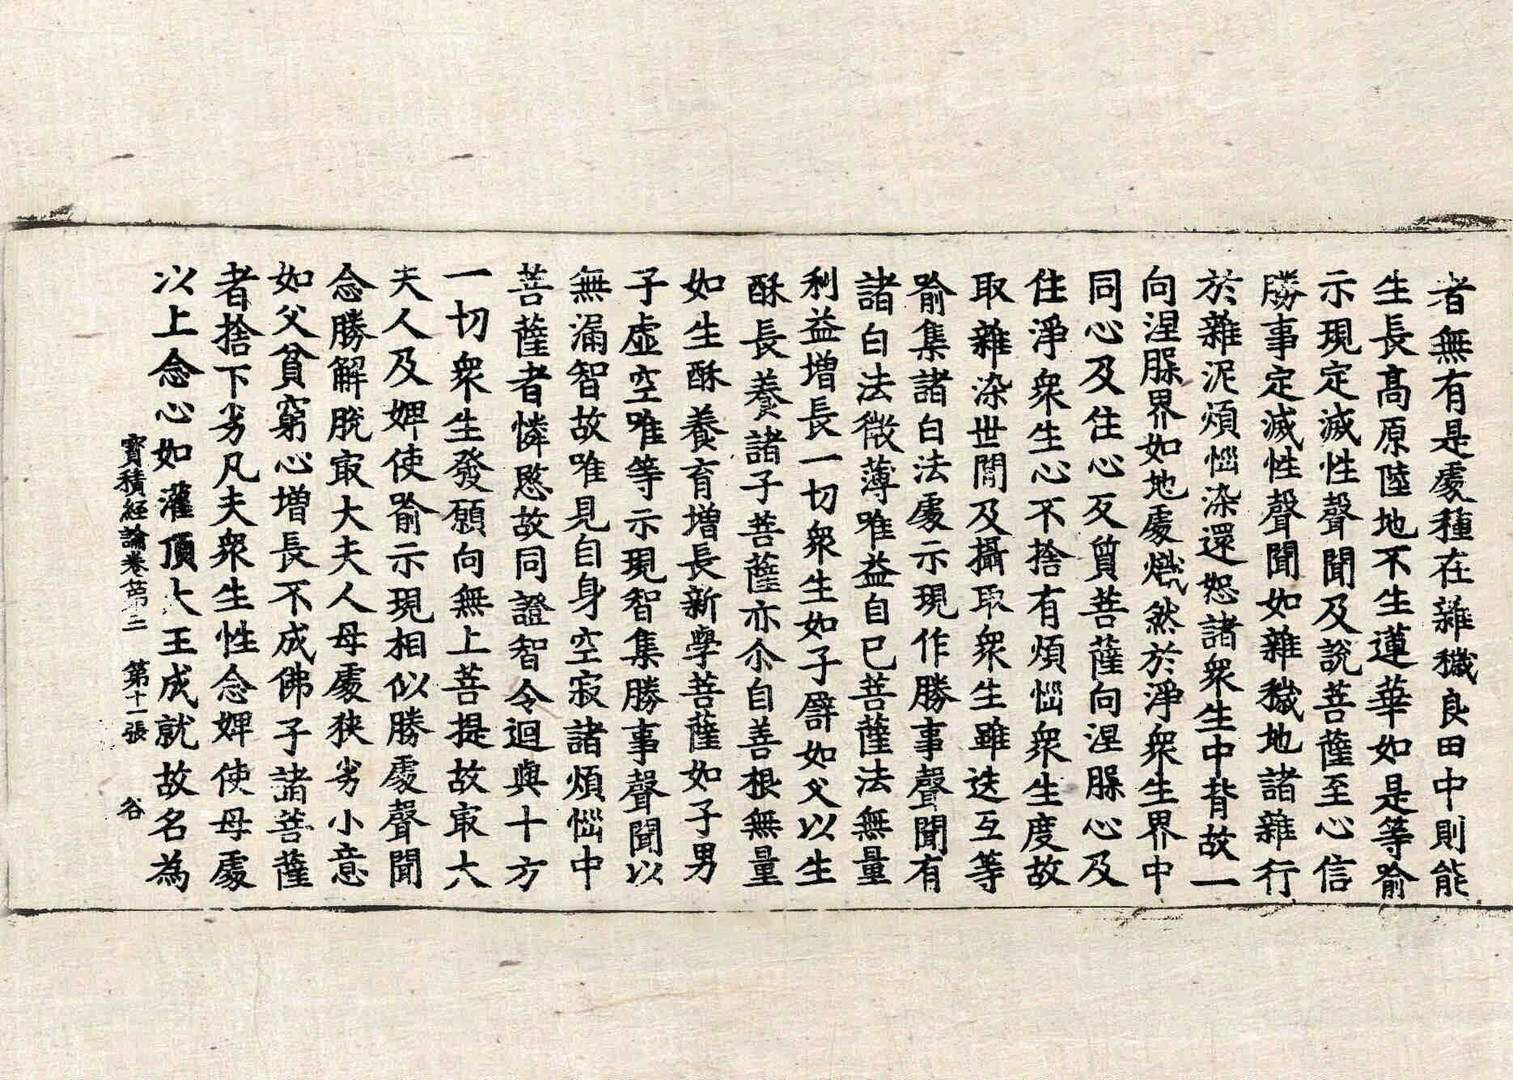 者無有是處種在雜穢良田中則能
生長高原陸地不生蓮華如是等喻
示現定滅性聲聞及說菩薩至心信
勝事定滅性聲聞如雜穢地諸雜行
於雜泥煩惱染還恕諸衆生中背故一
向涅槃界如地處熾然於淨衆生界中
同心及住心反質菩薩向涅槃心及
住淨衆生心不捨有煩惱衆生度故
取雜染世間及攝取衆生雖迭互等
喻集諸白法處示現作勝事聲聞有
諸白法微薄唯益自己菩薩法無量
利益增長一切衆生如子譬如父以生
酥長養諸子菩薩亦尒自善根無量
如生酥養育增長新學菩薩如子男
子虛空唯等示現智集勝事聲聞以
無漏智故唯見自身空寂諸煩惱中
菩薩者憐愍故同證智令迴與十方
一切衆生發願向無上菩提故㝡大
夫人及婢使喻示現相似勝處聲聞
念勝解脫㝡大夫人母處狹劣小意
如父貧窮心增長不成佛子諸菩薩
者捨下劣凡夫衆生性念婢使母處
以上念心如灌頂大王成就故名為
寶積經論卷第二　第十一張　谷